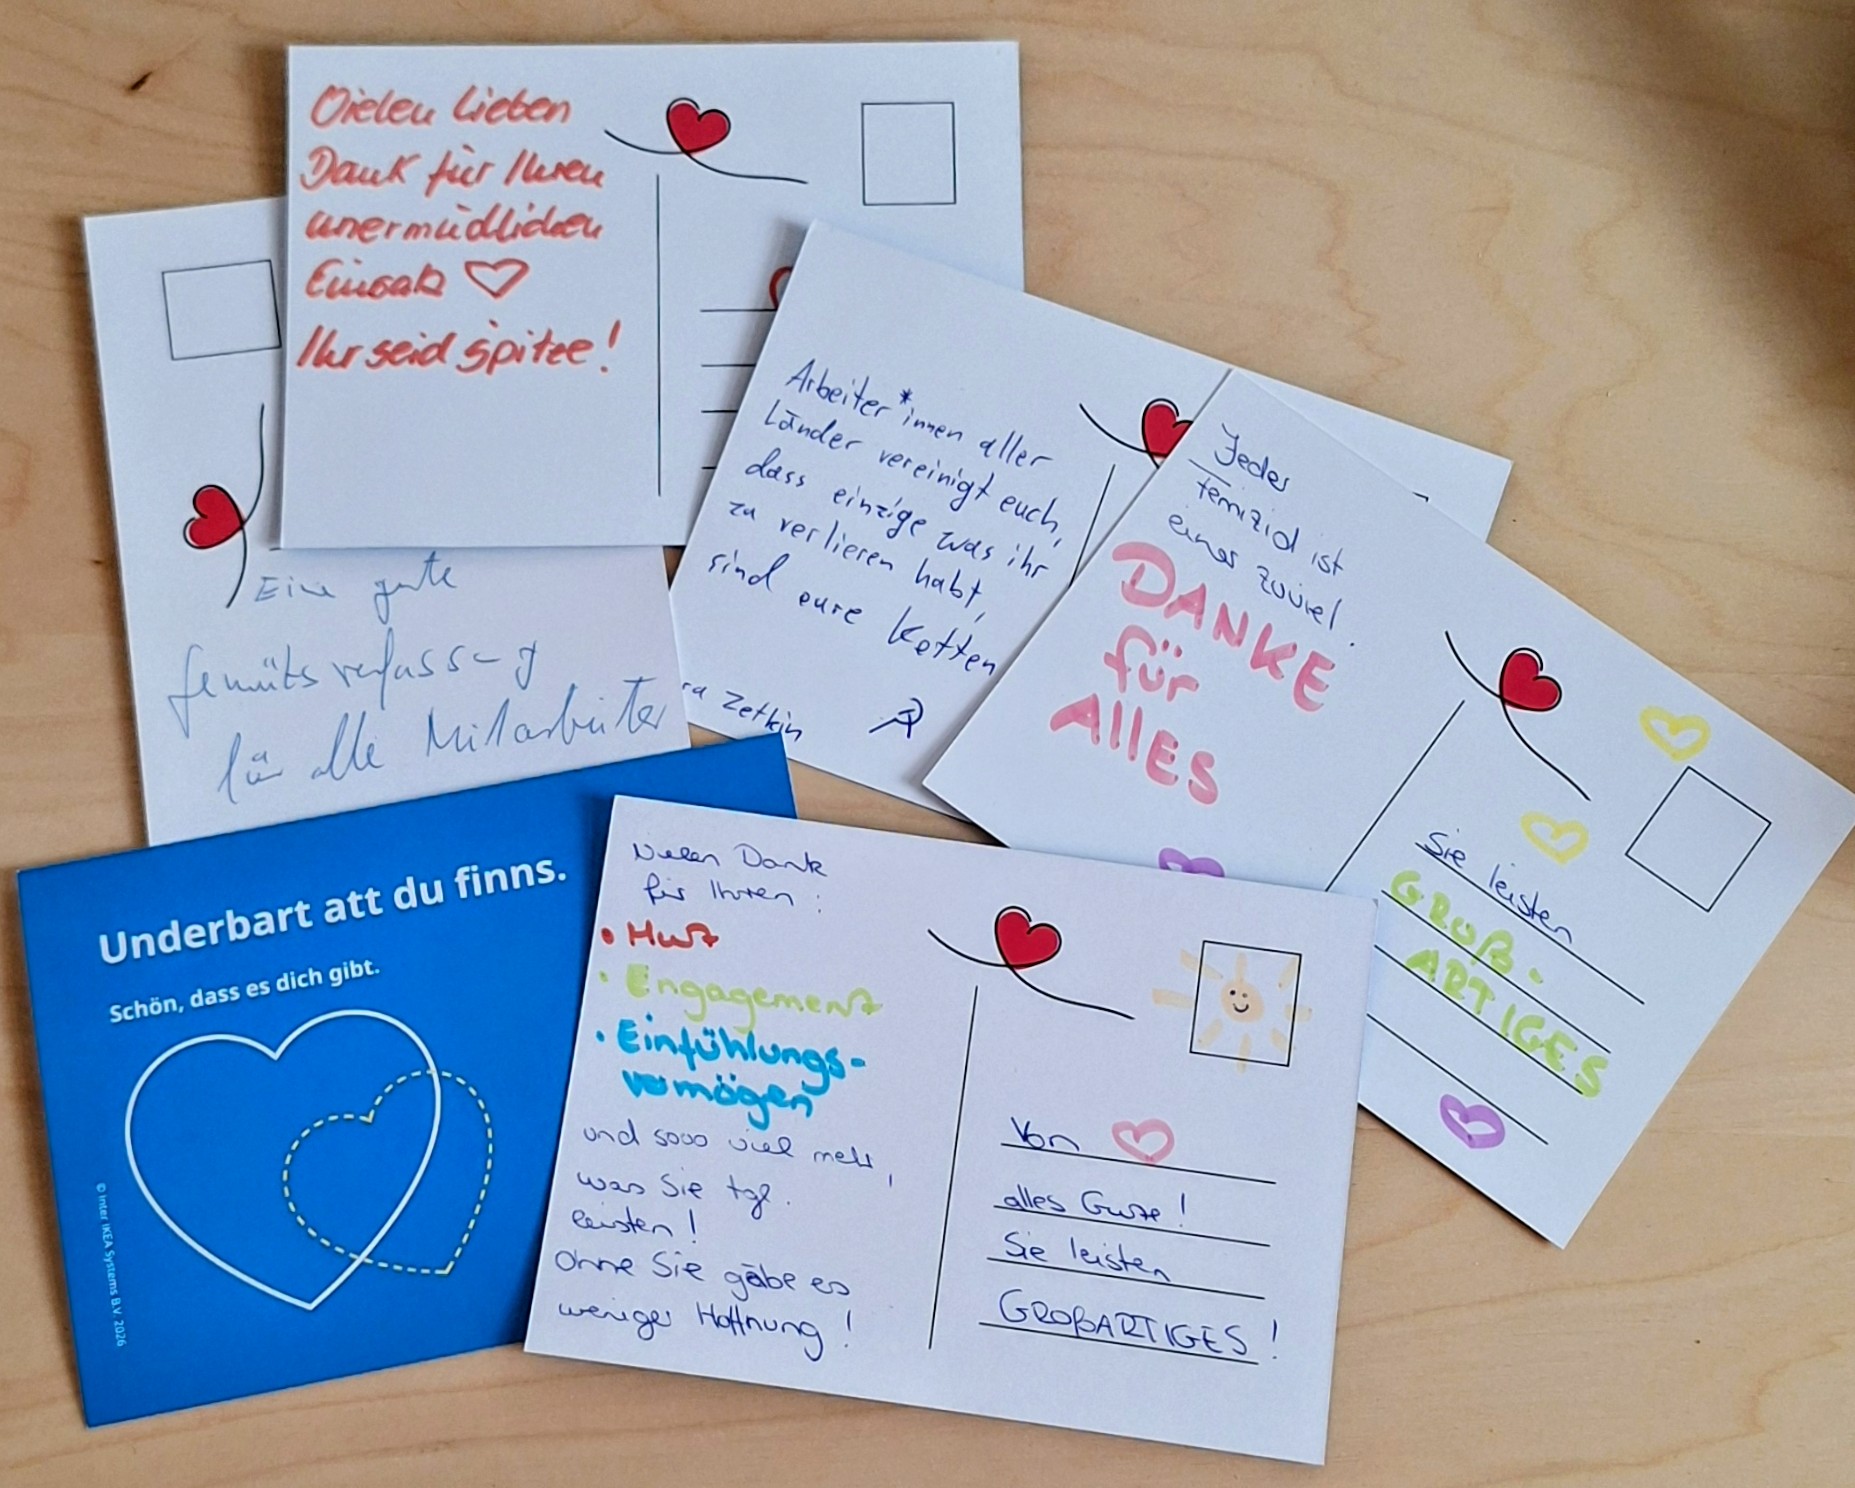 Vielen lieben
Dank für Ihren
unermüdlichen
Einsatz
Ihr seid spitze!
Eine gute
Gemütsverfassung
für alle Mitarbeiter
Arbeiter*innen aller
Länder vereinigt euch,
dass einzige was ihr
zu verlieren habt,
sind eure Ketten
ra Zetkin
Jedes
Femizid ist
eines zuviel.
DANKE
für
AllES
Sie leisten
GROß-
ARTIGES
Underbart att du finns.
Schön, dass es dich gibt.
© Inter IKEA Systems B.V. 2026
Vielen Dank
für Ihren:
• Mut
• Engagement
• Einfühlungs-
vermögen
und sooo viel mehr,
was Sie tgl.
leisten!
Ohne Sie gäbe es
weniger Hoffnung!
Von
alles Gute!
Sie leisten
GROßARTIGES!